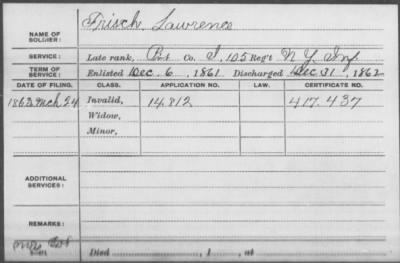 Frisch Lawrence
NAME OF SOLDIER:
SERVICE: Late rank, Pvt Co. I, 105 Reg't N.Y. Inf.
TERM OF SERVICE: Enlisted Dec. 6, 1861, Discharged Dec. 31, 1862
DATE OF FILING. CLASS. APPLICATION NO. LAW. CERTIFICATE NO.
1863 Mch 24 Invalid, 14.812 417.437
Widow,
Minor,
ADDITIONAL SERVICES:
REMARKS:
Died , 1 , at